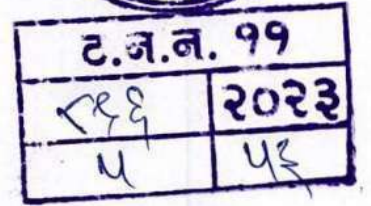 ट.न.न. ११
८९६ २०२३
५ ५३